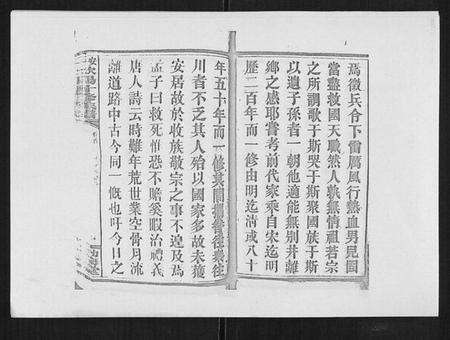 焉徵兵令下雷厲風行熱血男兒固
當盡救國天職然人孰無情祖若宗
之所謂歌于斯哭于斯聚國族于斯
以遺子孫者一朝他適能無別井離
鄉之感耶嘗考前代家乘自宋迄明
歷二百年而一修由明迄清或八十
年五十年而一修其間
川者不乏其人殆以國家多故未獲
安居故於收族敬宗之事不遑及焉
孟子曰救死恐不贍奚暇治禮義
唐人詩云時難年荒世業空骨月流
離道路中古今同一慨也吁今日之